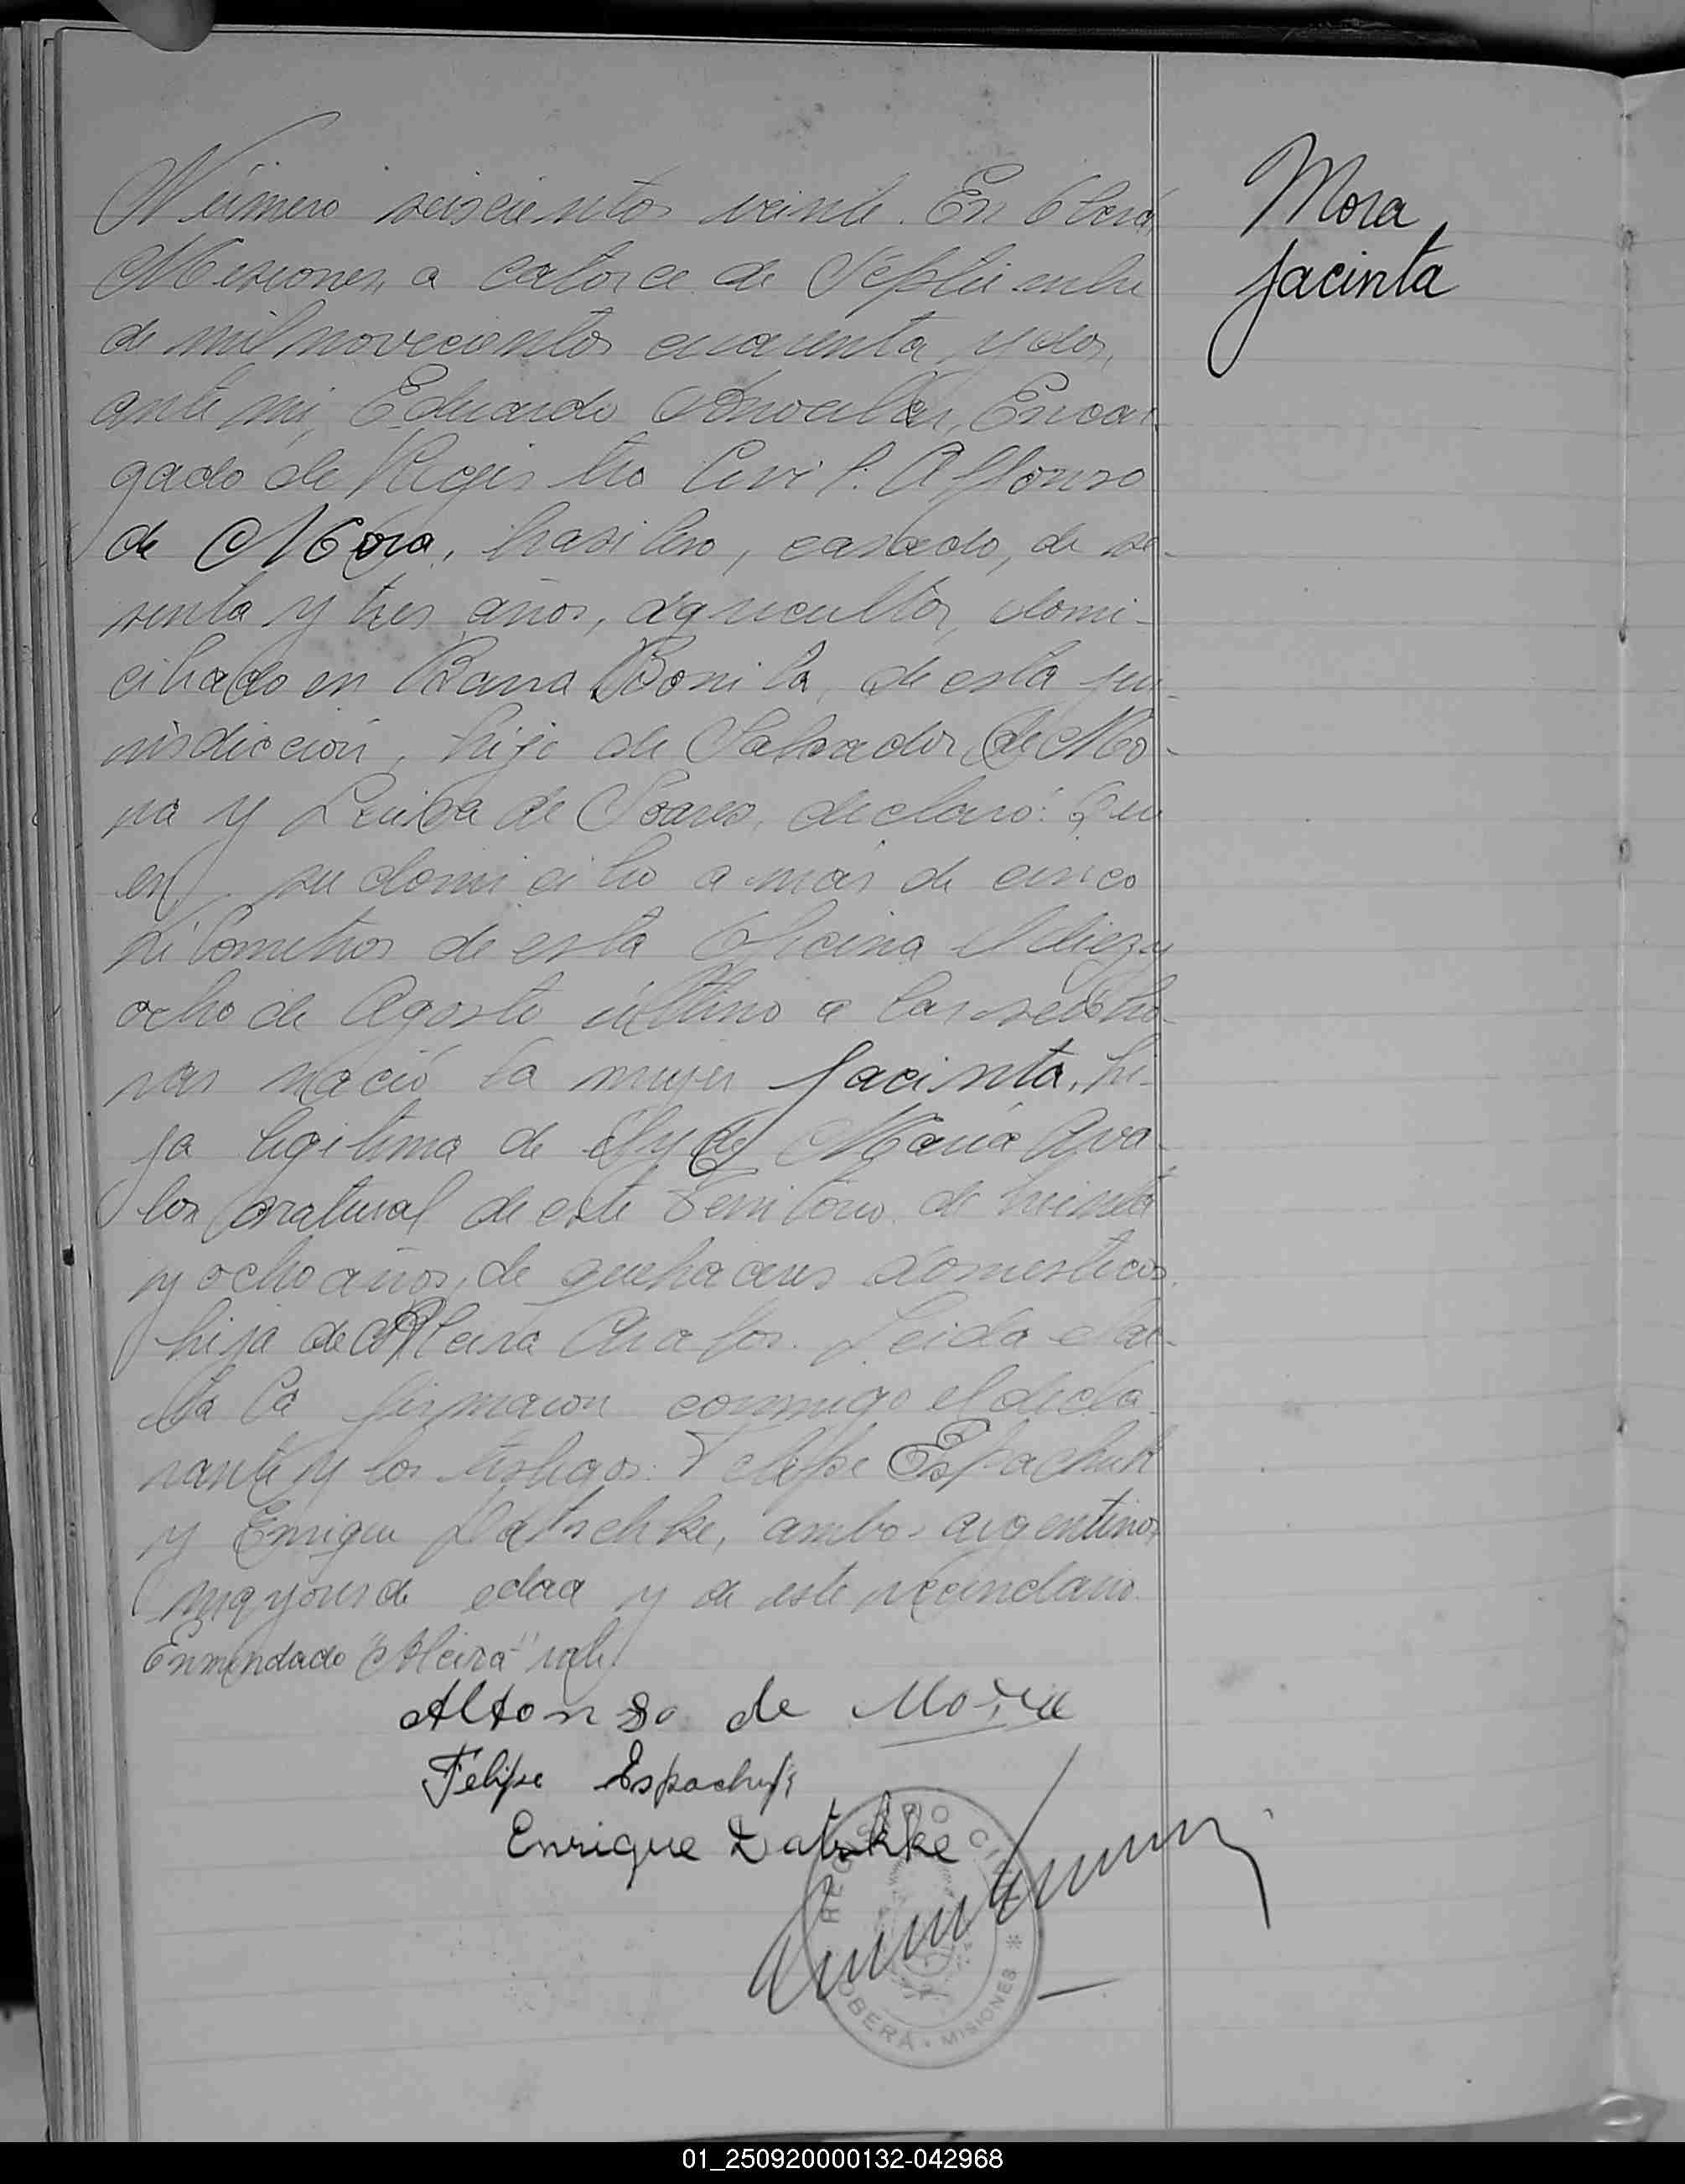 Número seiscientos veinte. En Oberá,
Misiones, a catorce de Septiembre
de mil novecientos cuarenta y dos,
ante mi, Eduardo Encar
gado de Registro Civil: Alfonso
de Mora, brasilero, casado, de se-
senta y tres años, agricultor, domi-
ciliado en Barra Bonita, de esta ju-
risdicción, hijo de Salvador de Mo-
ra y Luisa de Soares, declaró: Que
en su domicilio a más de cinco
kilometros de esta Oficina el diez y
ocho de Agosto último a las seis ho-
ras nació la mujer Jacinta, hi-
ja legitima de él y de María Ava-
los natural de este Territorio de treinta
y ocho años, de quehaceres domesticos
hija de Alcira Avalos. Leida el ac-
ta la firmaron conmigo el decla-
rante y los testigos: Felipe Espachuk
y Enrique Datschke, ambos argentinos
mayores de edad y de este vecindario.
Enmendado "Alcira" vale
Alfonso de Mora
Felipe Espachuk
Enrique Datschke
REGISTRO CIVIL
OBERÁ - MISIONES *
Mora,
Jacinta
01_250920000132-042968